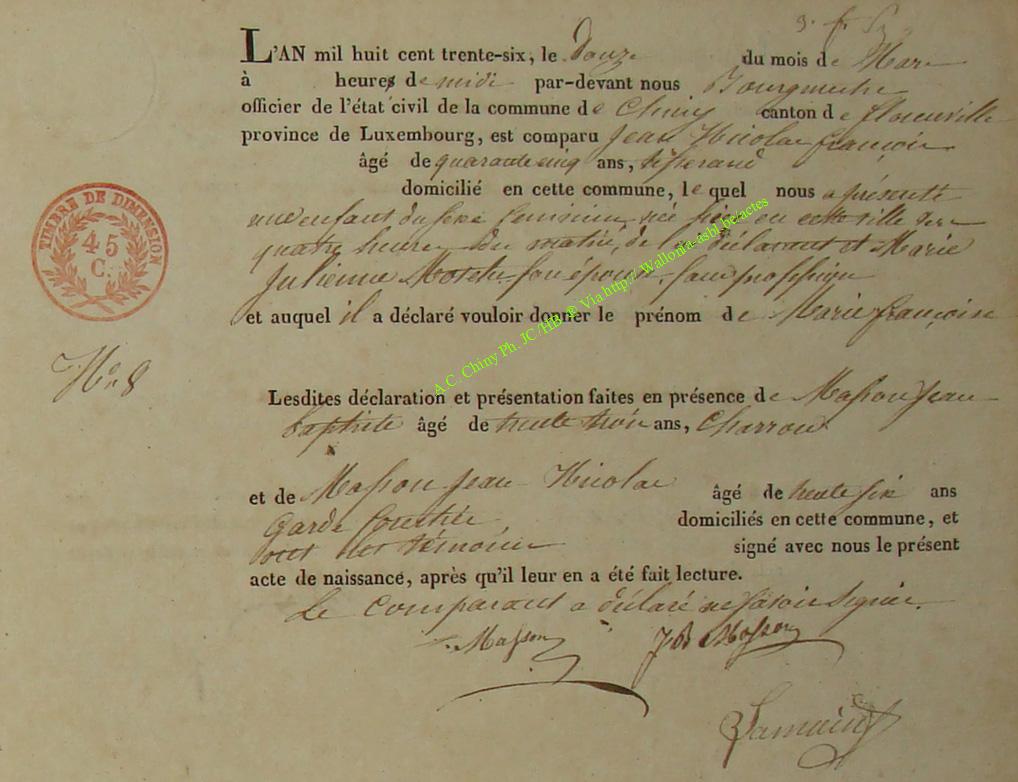 L'AN mil huit cent trente-six, le douze du mois de Mars
à heures de midi par-devant nous Bourgmestre
officier de l'état civil de la commune de Chiny canton de florenville
province de Luxembourg, est comparu Jean Nicolas françois
âgé de quarante cinq ans, tisserand
domicilié en cette commune, le quel nous a présenté
un enfant du sexe feminin née hier en cette ville vers
quatre heures du matin, de lui déclarant et Marie
Julienne son épouse, sans profession
et auquel il a déclaré vouloir donner le prénom de Marie françoise
TIMBRE DE DIMENSION
45
C.
No. 8
Lesdites déclaration et présentation faites en présence de Masson Jean
baptiste âgé de trente trois ans, Charron
et de Masson Jean Nicolas âgé de trente six ans
Garde forestier domiciliés en cette commune, et
ont les témoins signé avec nous le présent
acte de naissance, après qu'il leur en a été fait lecture.
Le Comparant a déclaré ne savoir signer.
Masson JB Masson
A.C. Chiny Ph. JC /HB ® Via http:// Wallonia-asbl.be/actes